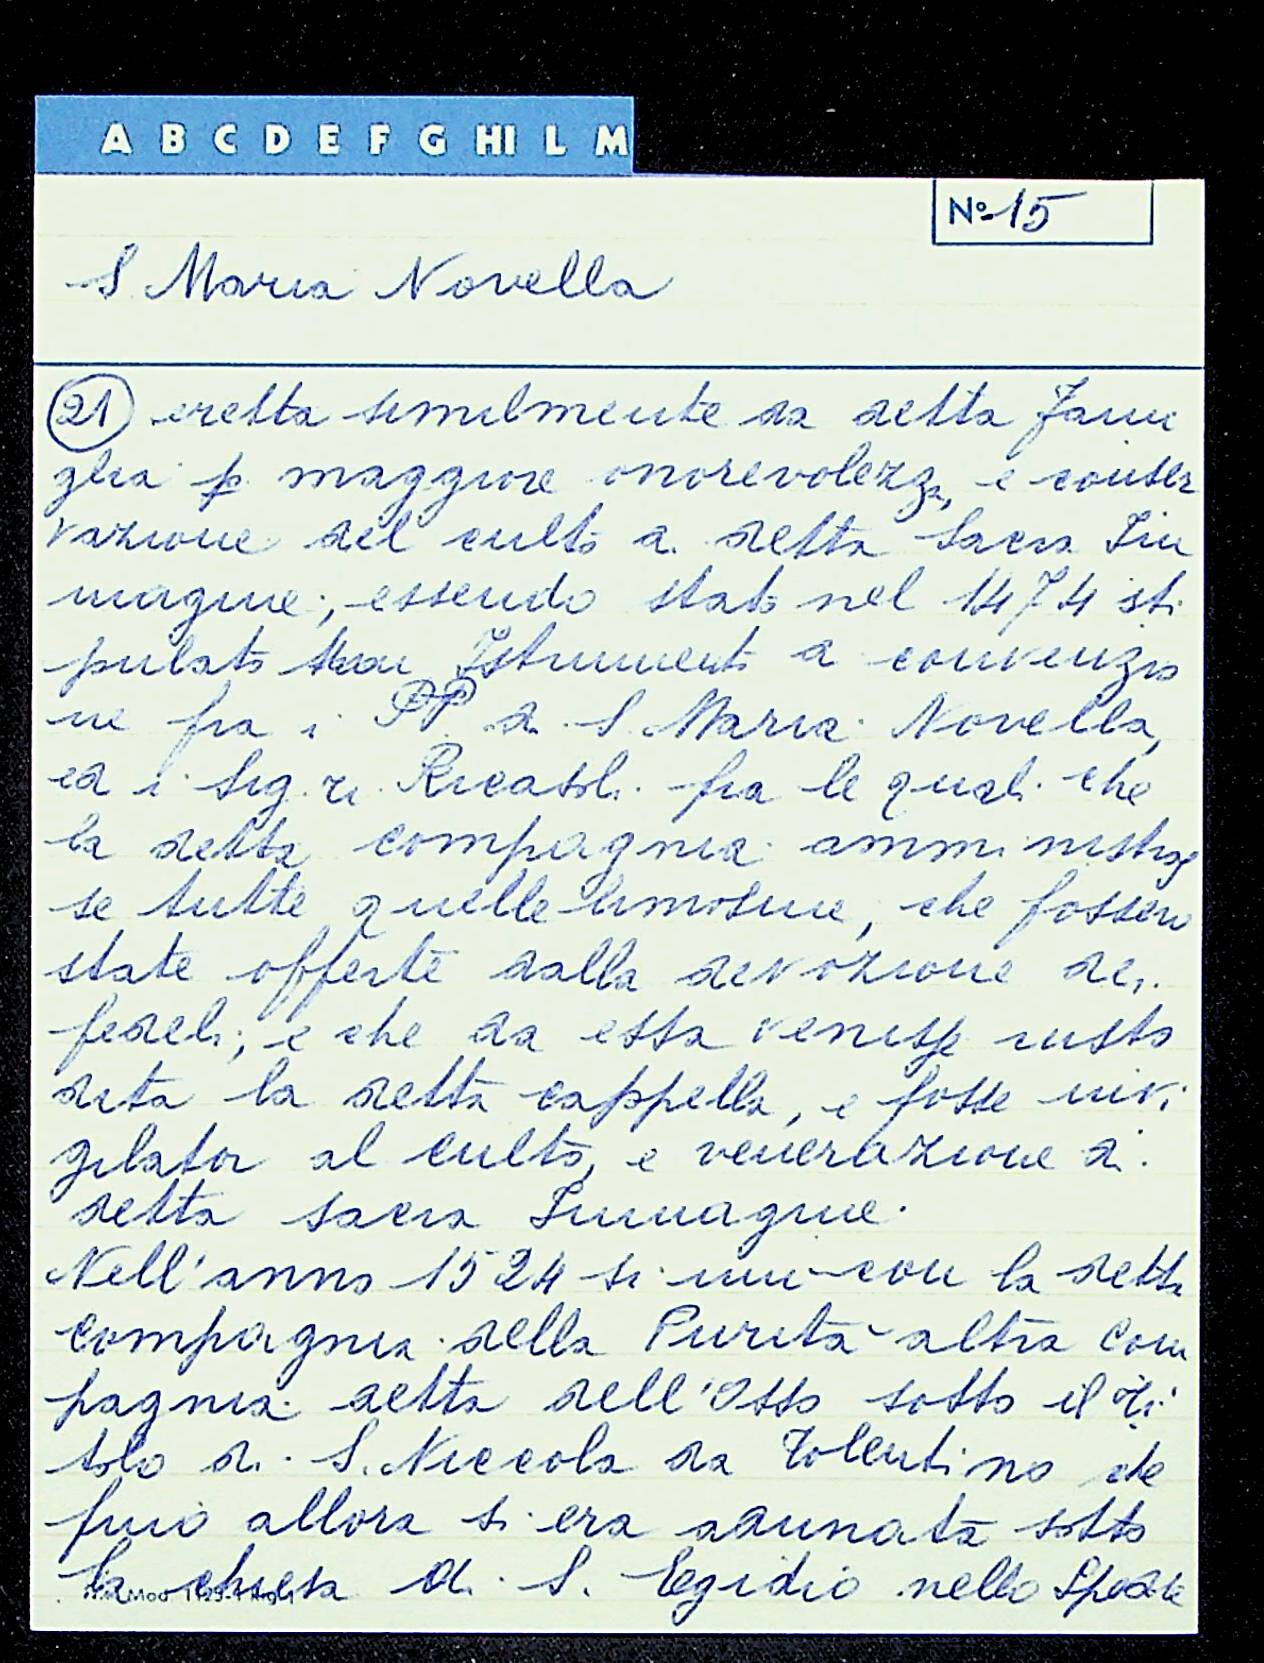 A B C D E F G HI L M
Nº 15
S. Maria Novella
21 eretta similmente da detta Fami
glia p maggiore onorevolezza, e conser
vazione del culto a detta Sacra Im
magine; essendo stato nel 1474 sti
pulato Istrumento a convenzio
ne fra i PP di S. Maria Novella,
ed i Sig.ri Ricasoli fra le quali che
la detta compagnia amministras
se tutte quelle limosine, che fossero
state offerte dalla devozione dei
fedeli; e che da essa venisse custo
dita la detta cappella, e fosse invi
gilator al culto, e venerazione di
detta sacra Immagine.
Nell'anno 1524 si unì con la detta
compagnia della Purità altra Com
pagnia detta dell'Osso sotto il Ti
tolo di S. Niccola da Tolentino che
fino allora si era adunata sotto
la chiesa di S. Egidio nello Spedale